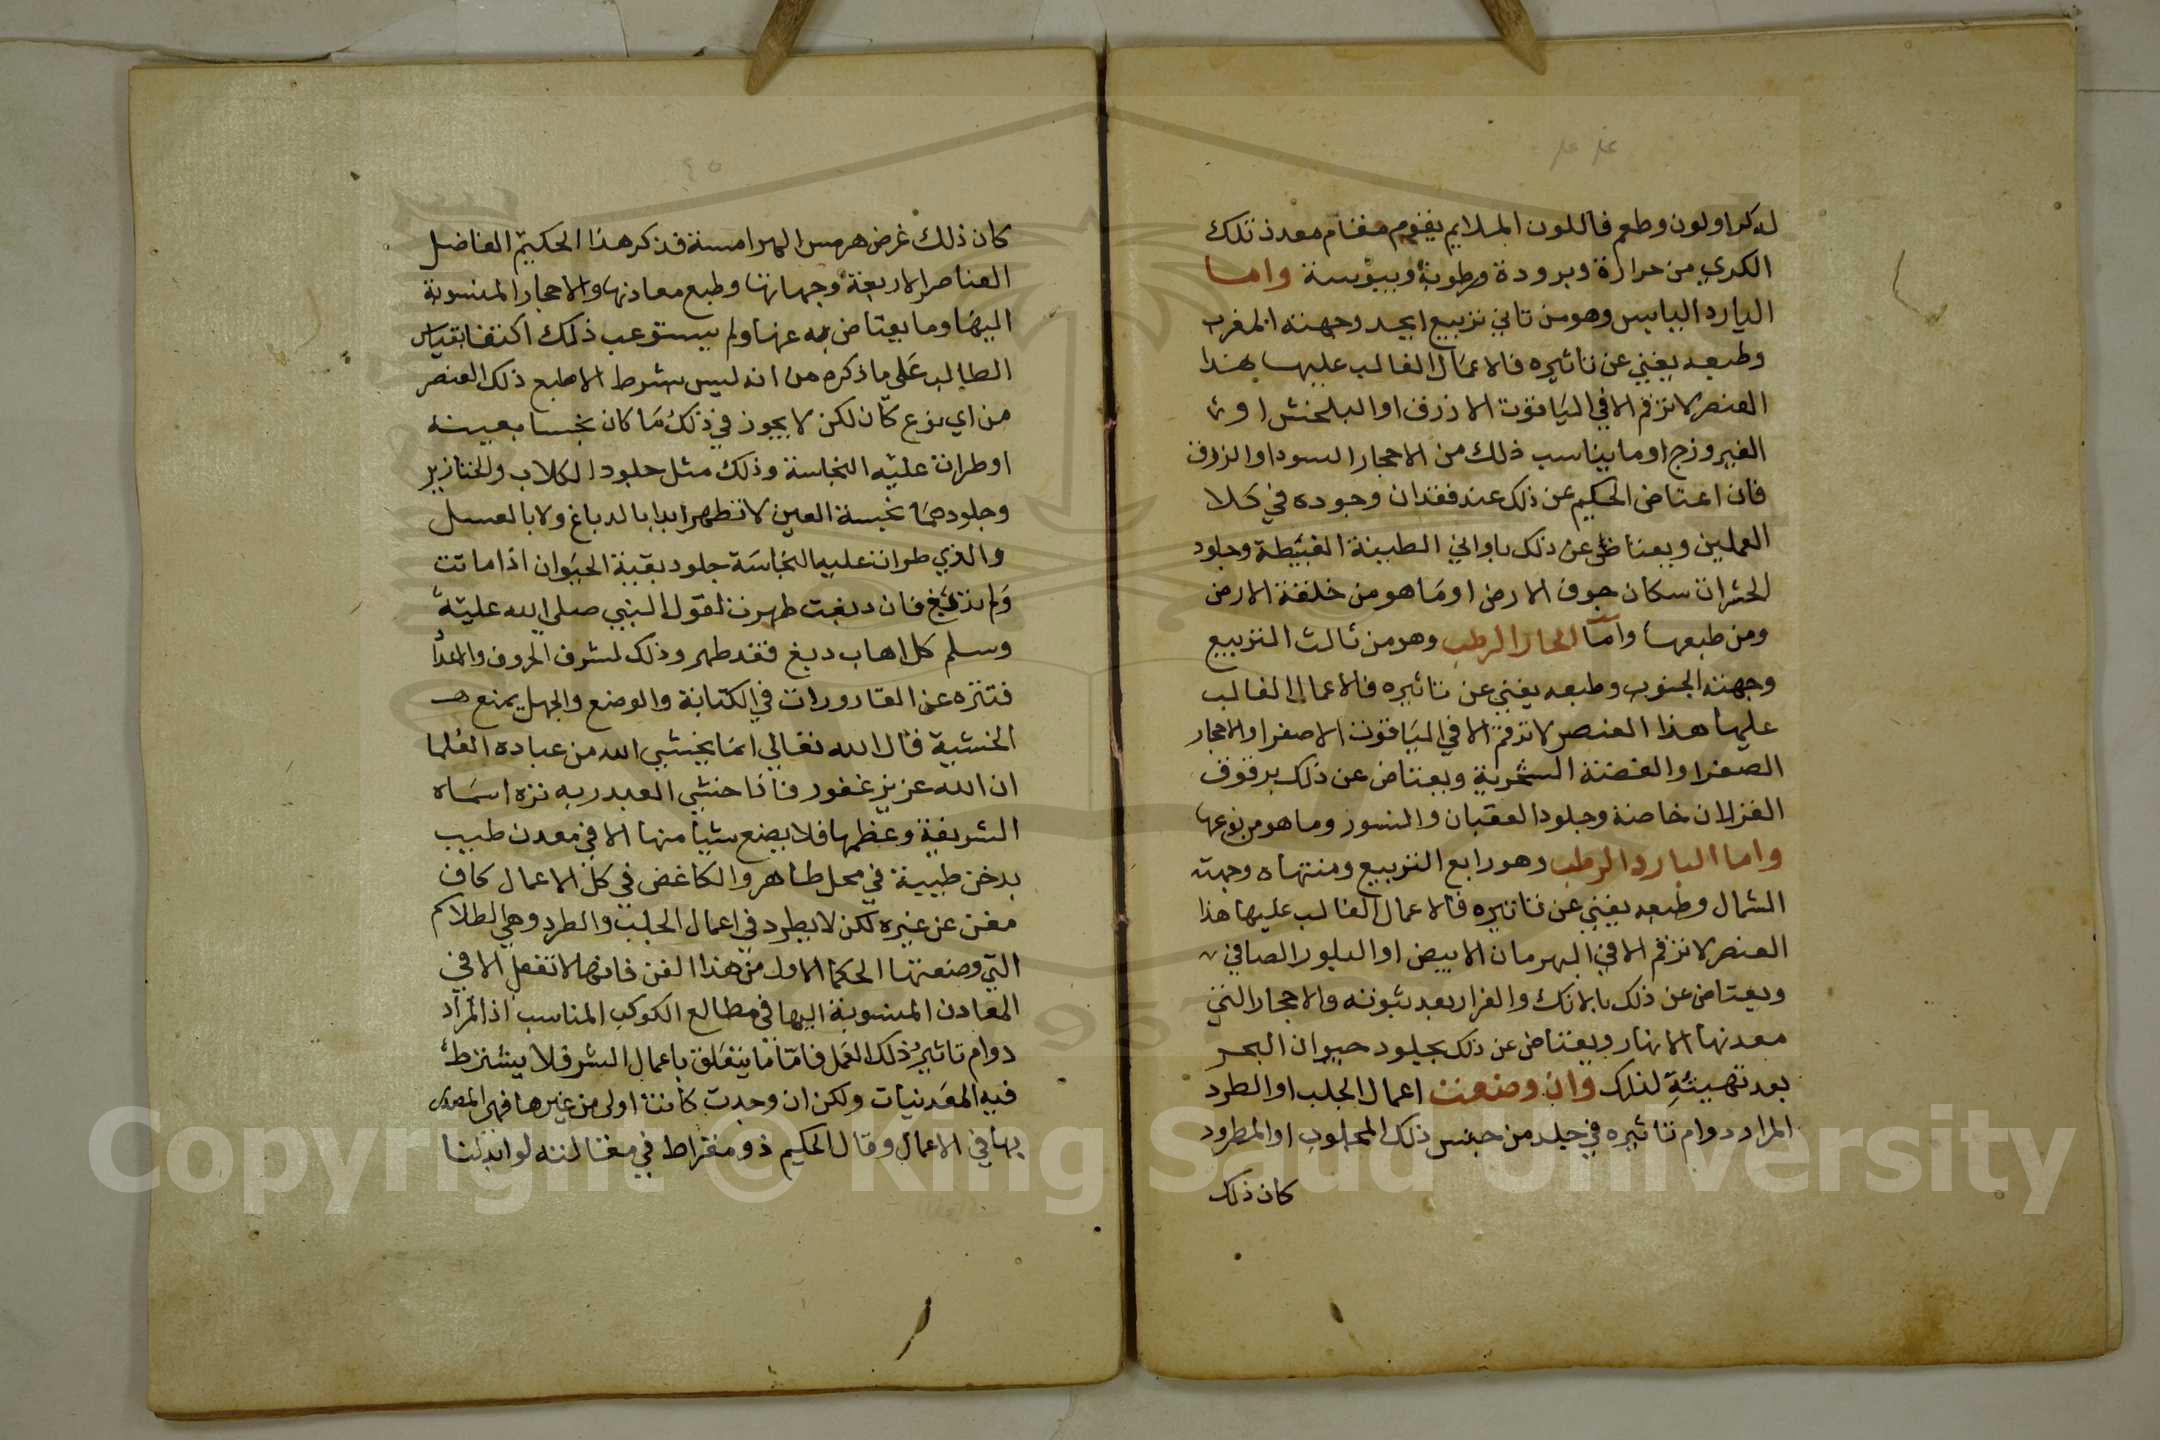 ٤٤
له كرا ولون وطعم فاللون الملايم يقوم مقام معدن تلك
الكري من حرارة وبرودة ورطوبة ويبوسة واما
البارد اليابس وهو من ثاني تربيع ابجد وجهته المغرب
وطبعه يغني عن تاثيره فالاعمال الغالب عليها هذا
العنصر لا ترقم الا في الياقوت الازرق او البلخش او
الفيروزج او ما يناسب ذلك من الاحجار السود او الزرق
فان اعتاض الحكيم عن ذلك عند فقدان وجوده في كلا
العملين ويعتاض عن ذلك باواني الطينة الغبيطة وجلود
الحشرات سكان جوف الارض او ما هو من خلقة الارض
ومن طبعها واما الحار الرطب وهو من ثالث التربيع
وجهته الجنوب وطبعه يغني عن تاثيره فالاعمال الغالب
عليها هذا العنصر لا ترقم الا في الياقوت الاصفر او الاحجار
الصفر او الفضة الشحرية ويعتاض عن ذلك برقوق
الغزلان خاصة وجلود العقبان والنسور وما هو من نوعها
واما البارد الرطب وهو رابع التربيع ومنتهاه وجهته
الشمال وطبعه يغني عن تاثيره فالاعمال الغالب عليها هذا
العنصر لا ترقم الا في البهرمان الابيض او البلور الصافي
ويعتاض عن ذلك بالانك والفرار بعد ثبوته والاحجار التي
معدنها الانهار ويعتاض عن ذلك بجلود حيوان البحر
بعد تهيئة لذلك وان وضعت اعمال الجلب او الطرد
المراد دوام تاثيره في جلد من جنس ذلك المجلوب او المطرود
كان ذلك
٤٥
كان ذلك غرض هرمس الهرامسة قد ذكر هذا الحكيم الفاضل
العناصر الاربعة وجهاتها وطبع معادنها والاحجار المنسوبة
اليها وما يعتاض به عنها ولم يستوعب ذلك اكتفا بقياس
الطالب على ما ذكره من انه ليس شرط الا طبع ذلك العنصر
من اي نوع كان لكن لا يجوز في ذلك ما كان نجسا بعينه
او طرات عليه النجاسة وذلك مثل جلود الكلاب والخنازير
وجلودهما نجسة العين لا تطهر ابدا بالدباغ ولا بالغسل
والذي طرات عليه النجاسة جلود بقية الحيوان اذا ماتت
ولم تدبغ فان دبغت طهرت لقول النبي صلى الله عليه
وسلم كل اهاب دبغ فقد طهر وذلك لشرف الحروف والاعدا
فتنزه عن القاذورات في الكتابة والوضع والجهل يمنع
الخشية قال الله تعالى انما يخشى الله من عباده العلما
ان الله عزيز غفور فاذا خشي العبد ربه نزه اسماه
الشريفة وعظمها فلا يضع شيا منها الا في معدن طيب
بدخن طيبة في محل طاهر والكاغض في كل الاعمال كاف
مغن عن غيره لكن لا يطرد في اعمال الجلب والطرد وهي الطلاكم
التي وضعتها الحكما الاول من هذا الفن فانها لا تفعل الا في
المعادن المنسوبة اليها في مطالع الكوكب المناسب اذا المراد
دوام تاثير ذلك العمل فاما ما يتعلق باعمال الشر فلا يشترط
فيه المعدنيات ولكن ان وجدت كانت اولى من غيرها فهي المصدر
بها في الاعمال وقال الحكيم ذو مقراط في مقالته لو ابدلنا
Copyright © King Saud University